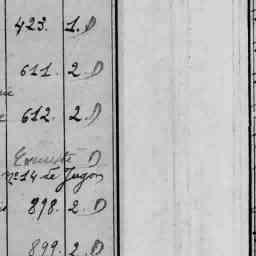 423. 1. D
611. 2. D
612. 2. D
D
N° 14 de Jugon
898. 2. D
899. 2. D